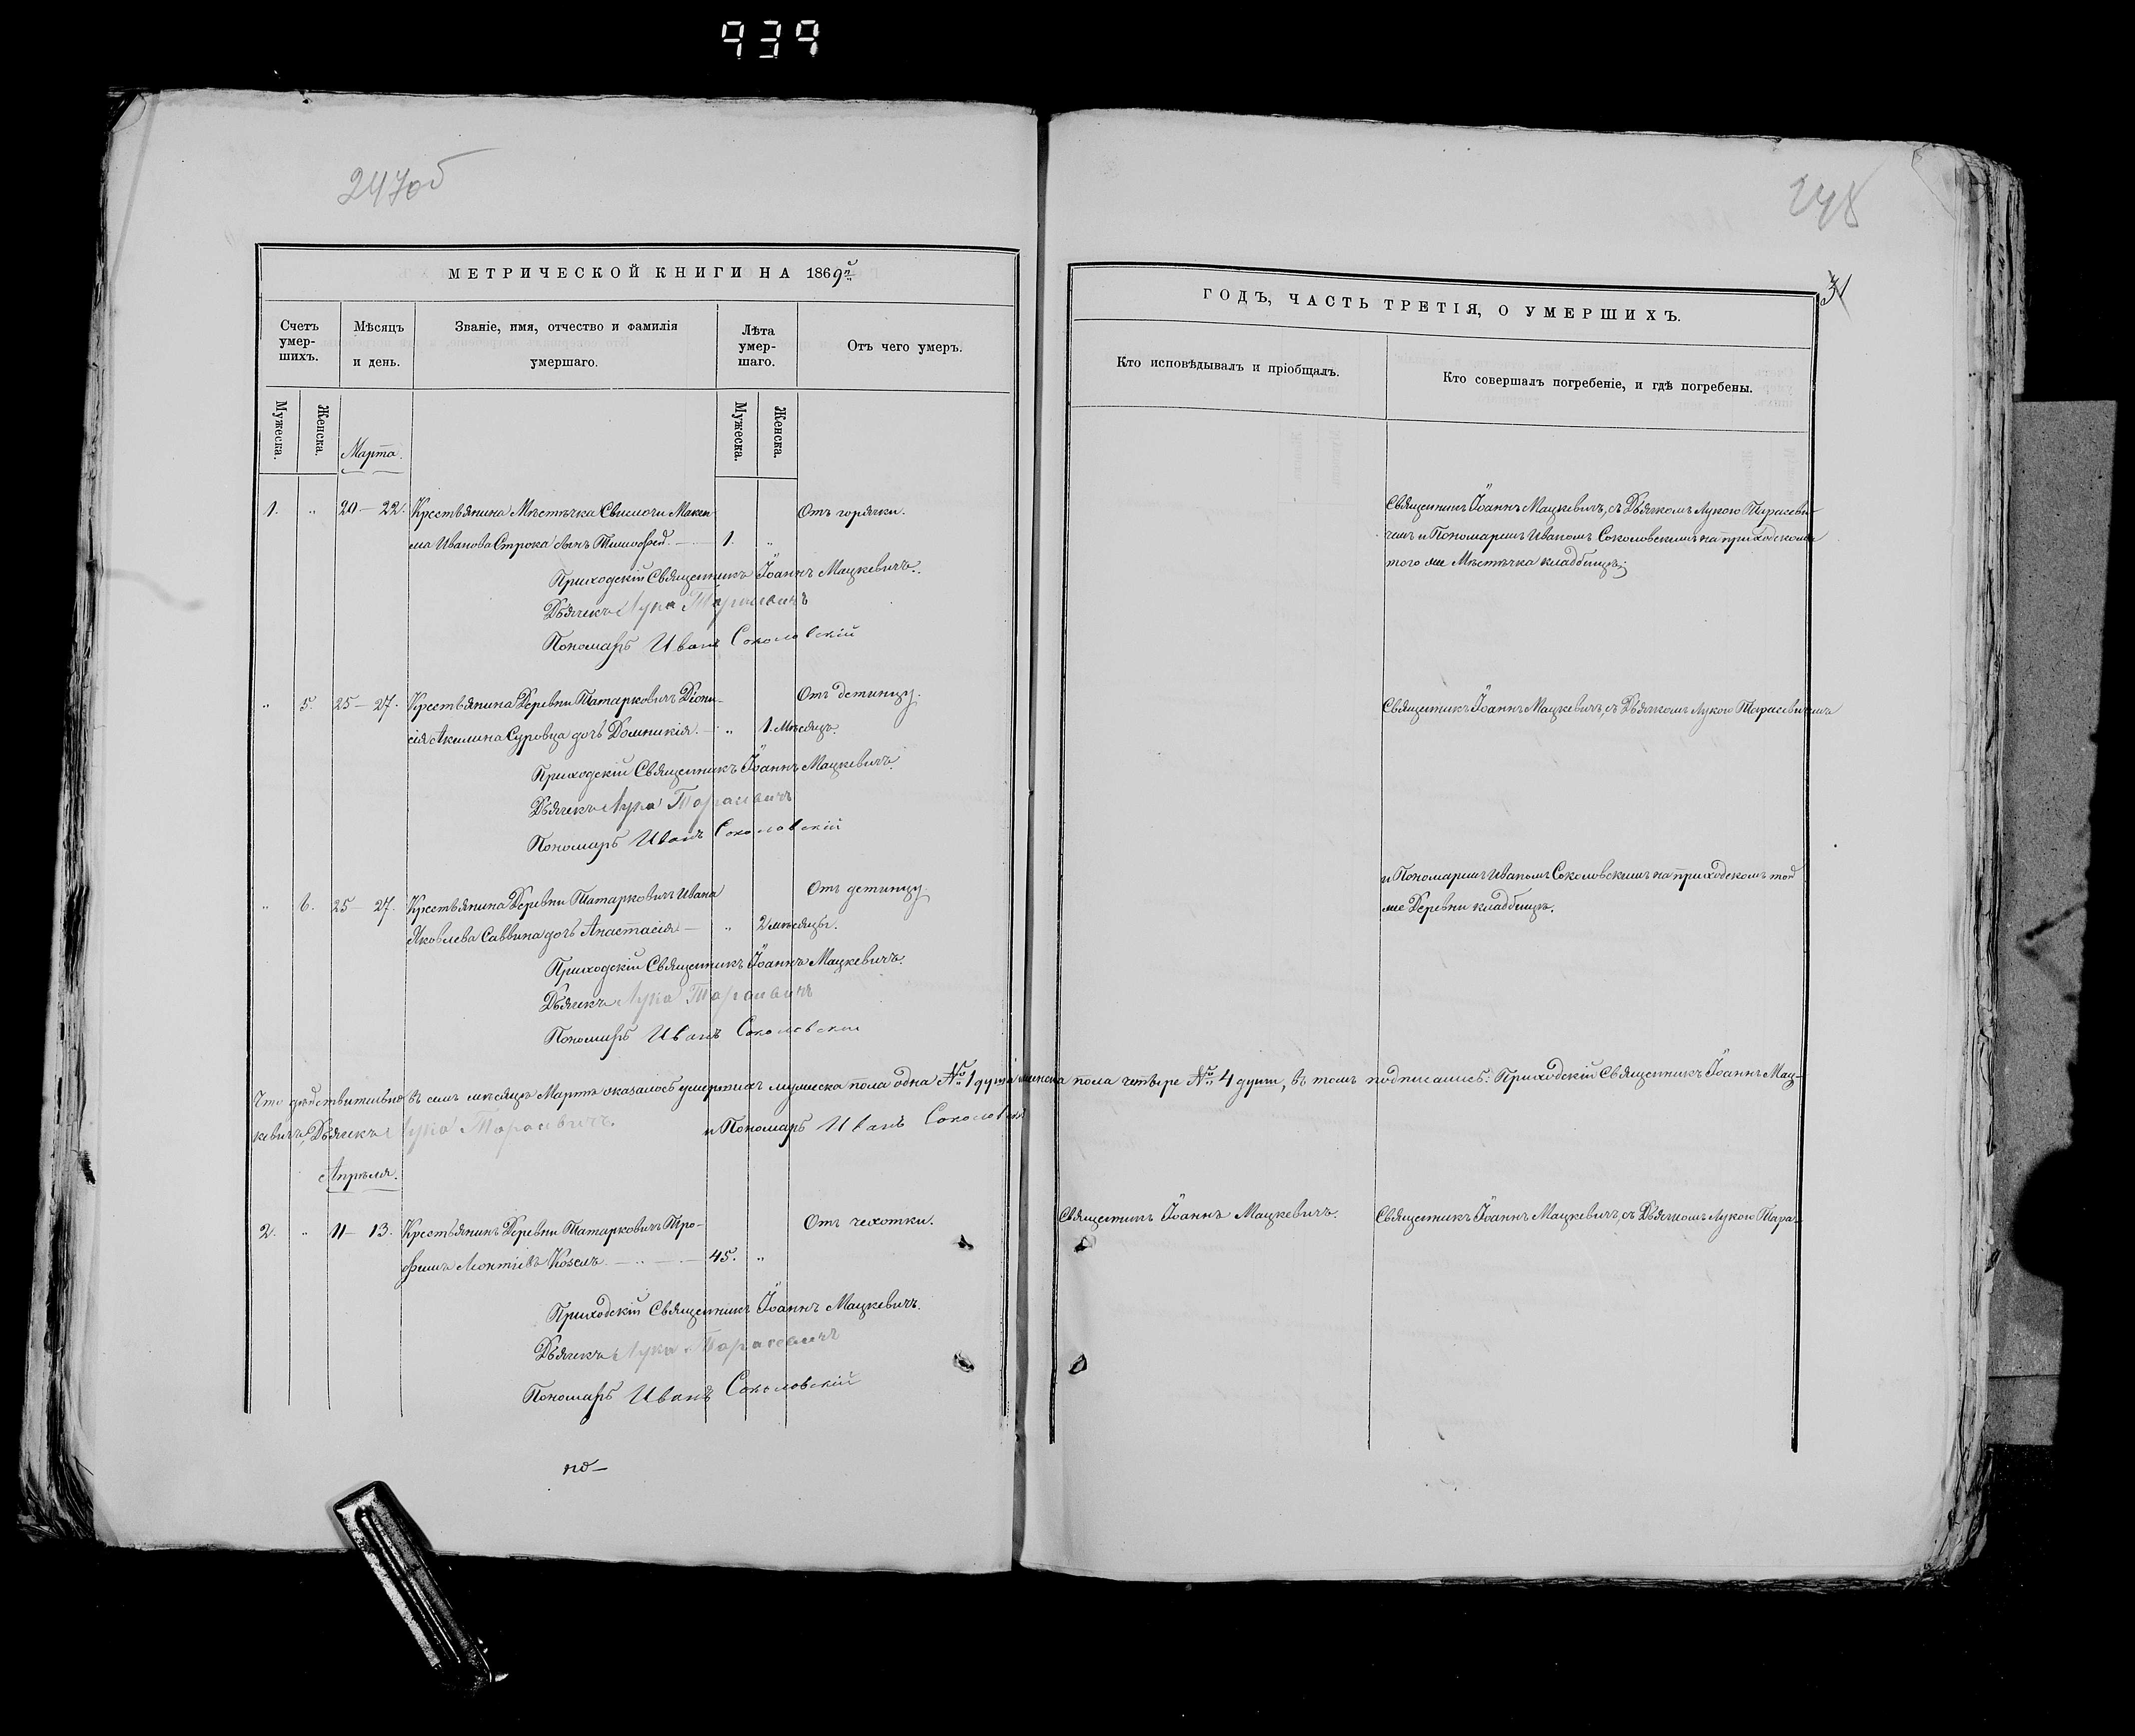 939
247об
248
МЕТРИЧЕСКОЙ КНИГИ НА 1869й
ГОДЪ, ЧАСТЬ ТРЕТІЯ, О УМЕРШИХЪ.
31
Счетъ умер-шихъ.
Мѣсяцъ и день.
Званіе, имя, отчество и фамилія умершаго.
Лѣта умер-шаго.
Отъ чего умеръ.
Кто исповѣдывалъ и пріобщалъ.
Кто совершалъ погребеніе, и гдѣ погребены.
Мужеска.
Женска.
Марта.
Мужеска.
Женска.
1. „ 20 — 22. Крестьянина Мѣстечка Свислочи Макси-
ма Иванова Строка сынъ Тимофей. — 1. „ Отъ горячки.
Священникъ Іоаннъ Мацкевичъ, съ Дьячкомъ Лукою Тарасеви-
чемъ и Пономаремъ Иваномъ Соколовскимъ на приходскомъ
того же Мѣстечка кладбищѣ;
Приходскій Священникъ Іоаннъ Мацкевичъ.
Дьячекъ Лука Тарасевичъ
Пономарь Иванъ Соколовскій
„ 5. 25 — 27. Крестьянина Деревни Татарковичъ Діони-
сія Акилина Суровца дочь Домникія. — „ 1. Мѣсяцъ. Отъ детинцу.
Священникъ Іоаннъ Мацкевичъ, съ Дьячкомъ Лукою Тарасевичемъ
Приходскій Священникъ Іоаннъ Мацкевичъ.
Дьячекъ Лука Тарасевичъ
Пономарь Иванъ Соколовскій
„ 6. 25 — 27. Крестьянина Деревни Татарковичъ Ивана
Яковлева Саввина дочь Анастасія — „ 2 мѣсяцы. Отъ детинцу.
и Пономаремъ Иваномъ Соколовскимъ на приходскомъ той
же Деревни кладбищѣ.
Приходскій Священникъ Іоаннъ Мацкевичъ.
Дьячекъ Лука Тарасевичъ
Пономарь Иванъ Соколовскій
Что дѣйствительно въ семъ мѣсяцѣ Мартѣ оказалось умершихъ мужеска пола одна № 1 душа женска пола четыре № 4 души, въ томъ подписались: Приходскій Священникъ Іоаннъ Мац-
кевичъ, Дьячекъ Лука Тарасевичъ. и Пономарь Иванъ Соколовскій
Апрѣля.
2. „ 11 — 13. Крестьянинъ Деревни Татарковичъ Тро-
фимъ Леонтіевъ Козелъ. — 45. „ Отъ чехотки.
Священникъ Іоаннъ Мацкевичъ.
Священникъ Іоаннъ Мацкевичъ, съ Дьячкомъ Лукою Тара-
Приходскій Священникъ Іоаннъ Мацкевичъ.
Дьячекъ Лука Тарасевичъ
Пономарь Иванъ Соколовскій
по —